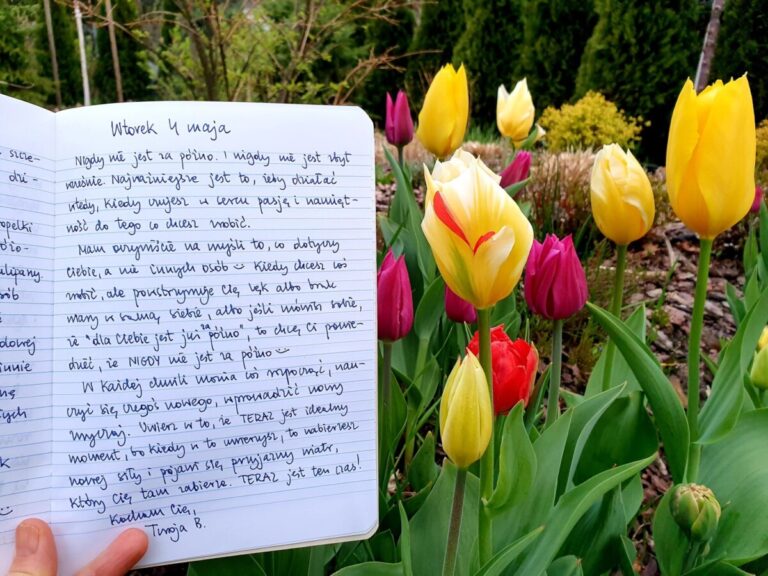 szcze-
dzi-
opelki
tulipany.
sób
dowej
Wtorek 4 maja
Nigdy nie jest za późno. I nigdy nie jest zbyt
wcześnie. Najważniejsze jest to, żeby działać
wtedy, kiedy czujesz w sercu pasję i namięt-
ność do tego co chcesz zrobić.
Mam oczywiście na myśli to, co dotyczy
Ciebie, a nie innych osób ☺ Kiedy chcesz coś
zrobić, ale powstrzymuje Cię lęk albo brak
wiary w samą siebie, albo jeśli mówisz sobie,
że "dla Ciebie jest już za późno", to chcę Ci powie-
dzieć, że NIGDY nie jest za późno ☺
W każdej chwili można coś rozpocząć, nau-
czyć się czegoś nowego, wprowadzić nowy
zwyczaj. Uwierz w to, że TERAZ jest idealny
moment, bo kiedy w to uwierzysz, to nabierzesz
nowej siły i pojawi się przyjazny wiatr,
który Cię tam zabierze. TERAZ jest ten czas!
Kocham Cię,
Twoja B.